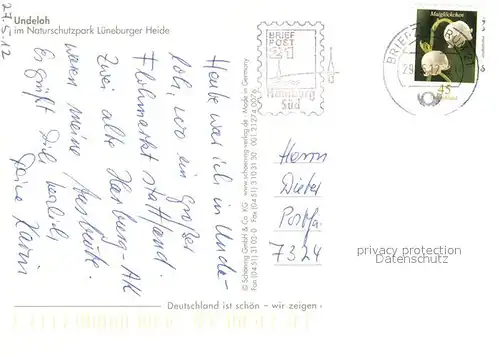 Undeloh
im Naturschutzpark Lüneburger Heide
27.5.12
Heute war ich in Unde-
loh, wo ein großer
Flohmarkt stattfand.
Zwei alte Harburg-AK
waren meine Ausbeute.
Es grüßt Dich herzlich
Deine Karin
© Schöning GmbH & Co. KG · www.schoening-verlag.de · Made in Germany
Fon (04 51) 3 10 3-0 · Fax (04 51)
BRIEF
POST
21
Hamburg
Süd
BRIEFZENTRUM
Maiglöckchen
45
Herrn
Dieter
Postfa
7324
privacy protection
Datenschutz
Deutschland ist schön – wir zeigen